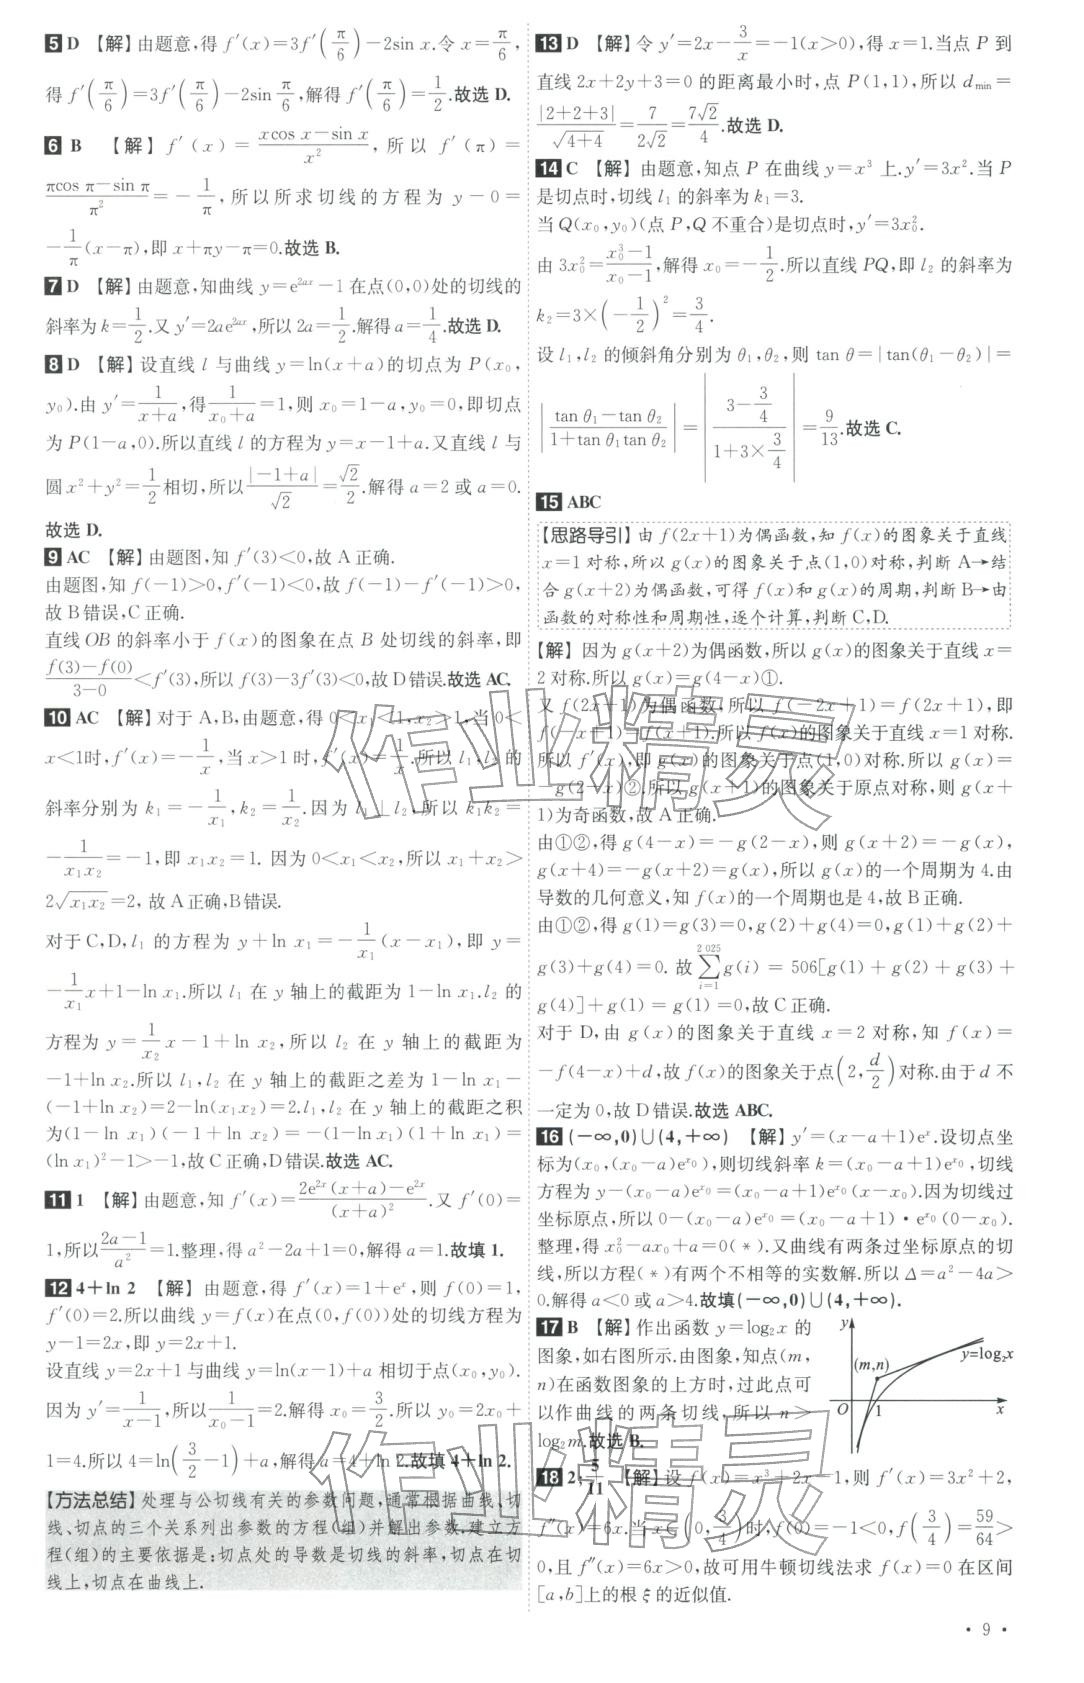 5 D 【解】由题意,得 f′(x)=3f′(π/6)−2sin x.令 x=π/6,
得 f′(π/6)=3f′(π/6)−2sin π/6,解得 f′(π/6)=1/2.故选 D.
6 B 【解】f′(x)=(xcos x−sin x)/x²,所以 f′(π)=
(πcos π−sin π)/π²=−1/π,所以所求切线的方程为 y−0=
−1/π(x−π),即 x+πy−π=0.故选 B.
7 D 【解】由题意,知曲线 y=e²ᵃˣ−1在点(0,0)处的切线的
斜率为 k=1/2.又 y′=2ae²ᵃˣ,所以 2a=1/2.解得 a=1/4.故选 D.
8 D 【解】设直线 l 与曲线 y=ln(x+a)的切点为 P(x₀,
y₀).由 y′=1/(x+a),得1/(x₀+a)=1,则 x₀=1−a,y₀=0,即切点
为 P(1−a,0).所以直线 l 的方程为 y=x−1+a.又直线 l 与
圆 x²+y²=1/2相切,所以|−1+a|/√2=√2/2.解得 a=2 或 a=0.
故选 D.
9 AC 【解】由题图,知 f′(3)<0,故 A 正确.
由题图,知 f(−1)>0,f′(−1)<0,故 f(−1)−f′(−1)>0,
故 B 错误,C 正确.
直线 OB 的斜率小于 f(x)的图象在点 B 处切线的斜率,即
(f(3)−f(0))/(3−0)<f′(3),所以 f(3)−3f′(3)<0,故 D 错误.故选 AC.
10 AC 【解】对于 A,B,由题意,得 0<x₁<1,x₂>1,当 0<
x<1时,f′(x)=−1/x,当 x>1 时,f′(x)=1/x.所以 l₁,l₂ 的
斜率分别为 k₁=−1/x₁,k₂=1/x₂.因为 l₁⊥l₂,所以 k₁k₂=
−1/(x₁x₂)=−1,即 x₁x₂=1. 因为 0<x₁<x₂,所以 x₁+x₂>
2√(x₁x₂)=2, 故 A 正确,B 错误.
对于 C,D,l₁ 的方程为 y+ln x₁=−1/x₁(x−x₁),即 y=
−1/x₁x+1−ln x₁.所以 l₁ 在 y 轴上的截距为 1−ln x₁.l₂ 的
方程为 y=1/x₂x−1+ln x₂,所以 l₂ 在 y 轴上的截距为
−1+ln x₂.所以 l₁,l₂ 在 y 轴上的截距之差为 1−ln x₁−
(−1+ln x₂)=2−ln(x₁x₂)=2.l₁,l₂ 在 y 轴上的截距之积
为(1−ln x₁)(−1+ln x₂)=−(1−ln x₁)(1+ln x₁)=
(ln x₁)²−1>−1,故 C 正确,D 错误.故选 AC.
11 1 【解】由题意,知 f′(x)=(2e²ˣ(x+a)−e²ˣ)/(x+a)².又 f′(0)=
1,所以(2a−1)/a²=1.整理,得 a²−2a+1=0,解得 a=1.故填 1.
12 4+ln 2 【解】由题意,得 f′(x)=1+eˣ,则 f(0)=1,
f′(0)=2.所以曲线 y=f(x)在点(0,f(0))处的切线方程为
y−1=2x,即 y=2x+1.
设直线 y=2x+1与曲线 y=ln(x−1)+a 相切于点(x₀,y₀).
因为 y′=1/(x−1),所以1/(x₀−1)=2.解得 x₀=3/2.所以 y₀=2x₀+
1=4.所以 4=ln(3/2−1)+a,解得 a=4+ln 2.故填 4+ln 2.
【方法总结】处理与公切线有关的参数问题,通常根据曲线、切
线、切点的三个关系列出参数的方程(组)并解出参数,建立方
程(组)的主要依据是:切点处的导数是切线的斜率,切点在切
线上,切点在曲线上.
13 D 【解】令 y′=2x−3/x=−1(x>0),得 x=1.当点 P 到
直线 2x+2y+3=0 的距离最小时,点 P(1,1),所以 dmin=
|2+2+3|/√(4+4)=7/(2√2)=7√2/4.故选 D.
14 C 【解】由题意,知点 P 在曲线 y=x³ 上.y′=3x².当 P
是切点时,切线 l₁ 的斜率为 k₁=3.
当 Q(x₀,y₀)(点 P,Q 不重合)是切点时,y′=3x₀².
由 3x₀²=(x₀³−1)/(x₀−1),解得 x₀=−1/2.所以直线 PQ,即 l₂ 的斜率为
k₂=3×(−1/2)²=3/4.
设 l₁,l₂ 的倾斜角分别为 θ₁,θ₂,则 tan θ=|tan(θ₁−θ₂)|=
|(tan θ₁−tan θ₂)/(1+tan θ₁tan θ₂)|=|(3−3/4)/(1+3×3/4)|=9/13.故选 C.
15 ABC
【思路导引】由 f(2x+1)为偶函数,知 f(x)的图象关于直线
x=1 对称,所以 g(x)的图象关于点(1,0)对称,判断 A→结
合 g(x+2)为偶函数,可得 f(x)和 g(x)的周期,判断 B→由
函数的对称性和周期性,逐个计算,判断 C,D.
【解】因为 g(x+2)为偶函数,所以 g(x)的图象关于直线 x=
2 对称.所以 g(x)=g(4−x)①.
又 f(2x+1)为偶函数,所以 f(−2x+1)=f(2x+1),即
f(−x+1)=f(x+1).所以 f(x)的图象关于直线 x=1 对称.
所以 f′(x),即 g(x)的图象关于点(1,0)对称.所以 g(x)=
−g(2−x)②.所以 g(x+1)的图象关于原点对称,则 g(x+
1)为奇函数,故 A 正确.
由①②,得 g(4−x)=−g(2−x),则 g(x+2)=−g(x),
g(x+4)=−g(x+2)=g(x),所以 g(x)的一个周期为 4.由
导数的几何意义,知 f(x)的一个周期也是 4,故 B 正确.
由①②,得 g(1)=g(3)=0,g(2)+g(4)=0,g(1)+g(2)+
g(3)+g(4)=0. 故 ∑(i=1→2 025) g(i) = 506[g(1) + g(2) + g(3) +
g(4)]+g(1) = g(1) =0,故 C 正确.
对于 D,由 g(x)的图象关于直线 x=2 对称,知 f(x)=
−f(4−x)+d,故 f(x)的图象关于点(2,d/2)对称.由于 d 不
一定为 0,故 D 错误.故选 ABC.
16 (−∞,0)∪(4,+∞) 【解】y′=(x−a+1)eˣ.设切点坐
标为(x₀,(x₀−a)eˣ⁰),则切线斜率 k=(x₀−a+1)eˣ⁰,切线
方程为 y−(x₀−a)eˣ⁰=(x₀−a+1)eˣ⁰(x−x₀).因为切线过
坐标原点,所以 0−(x₀−a)eˣ⁰=(x₀−a+1)•eˣ⁰(0−x₀).
整理,得 x₀²−ax₀+a=0(*).又曲线有两条过坐标原点的切
线,所以方程(*)有两个不相等的实数解.所以 Δ=a²−4a>
0.解得 a<0 或 a>4.故填(−∞,0)∪(4,+∞).
17 B 【解】作出函数 y=log₂x 的
图象,如右图所示.由图象,知点(m,
n)在函数图象的上方时,过此点可
以作曲线的两条切线,所以 n>
log₂m.故选 B.
y
(m,n)
y=log₂x
O
1
x
18 2;5/11 【解】设 f(x)=x³+2x−1,则 f′(x)=3x²+2,
f″(x)=6x.当 x∈(0,3/4)时,f(0)=−1<0,f(3/4)=59/64>
0,且 f″(x)=6x>0,故可用牛顿切线法求 f(x)=0 在区间
[a,b]上的根 ξ 的近似值.
• 9 •
作业精灵
作业精灵